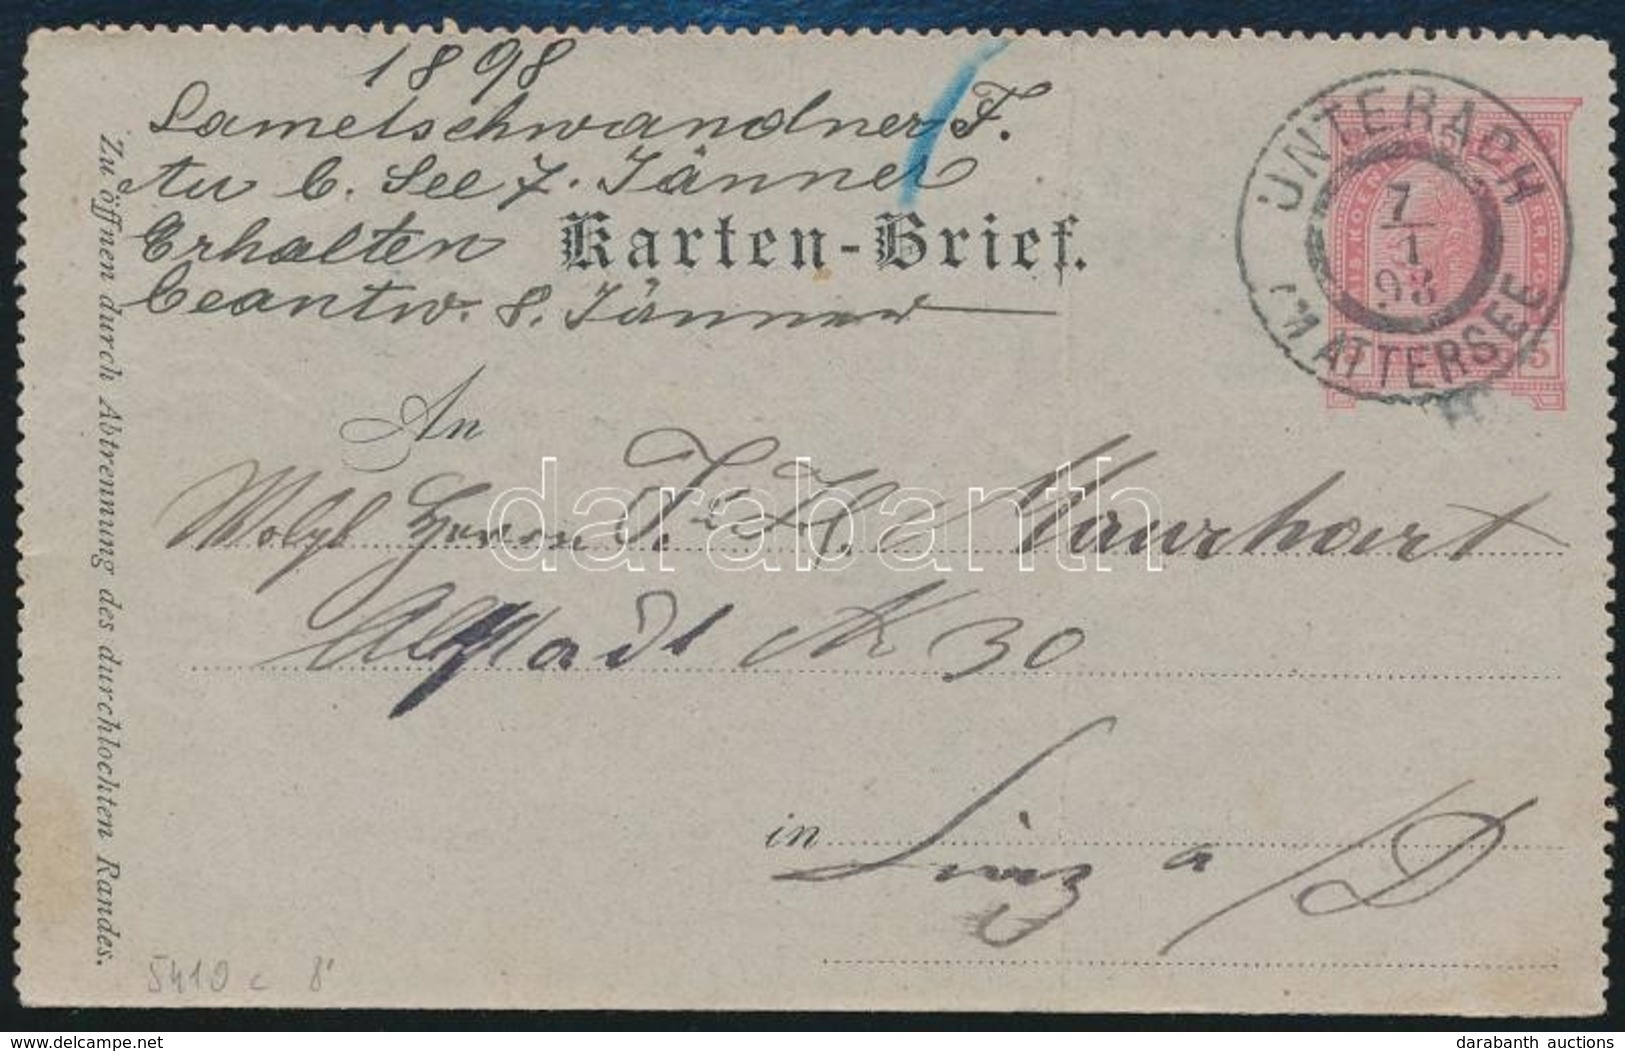 1898
Lametschwandner F.
Au b. See 7. Jänner
Erhalten
Beantw. 8. Jänner
Karten-Brief.
UNTERACH
7/1
98
ATTERSEE
5
An
Wolgb Herrn F. & H. Maurhart
Altstadt Nr 30
in Linz a/D
Zu öffnen durch Abtrennung des durchlochten Randes.
5410 c 8'
darabanth
delcampe.net
darabanth auctions